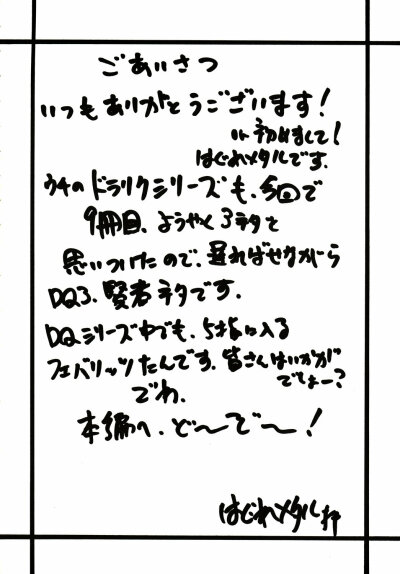 ごあいさつ
いつもありがとうございます!
初めまして!
はぐれメタルです。
ウチのドラクリシリーズも、今回で
9冊目、ようやく3ネタと
思いつけたので、遅ればせながら
DQ3、賢者ネタです。
DQシリーズ中でも、5指に入る
フェバリッツたんです。皆さんはいかが
でしょー?
でわ、
本編へ、ど〜ぞ〜!
はぐれメタル